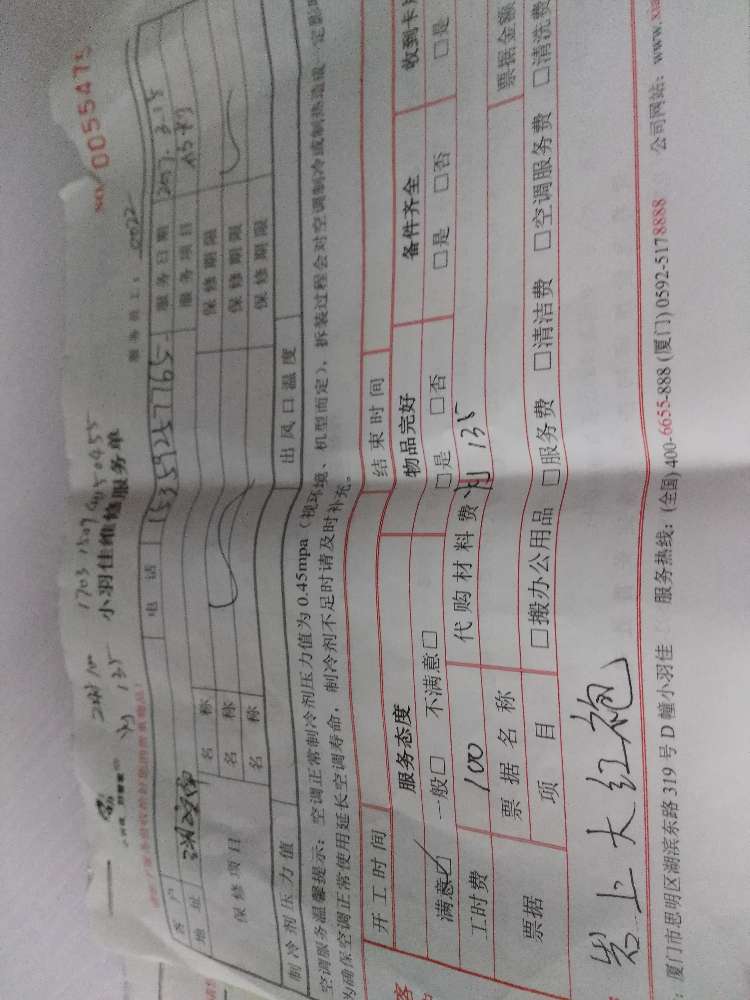 170315094050455
小羽佳维修服务单
NO. 0055475
服务员工:
客户
电话 15359257765
服务日期
地址
服务项目
保修项目
名称
保修期限
名称
保修期限
名称
保修期限
制冷剂压力值
出风口温度
空调服务温馨提示:空调正常制冷剂压力值为 0.45mpa(视环境、机型而定),拆装过程会对空调制冷或制热造成一定影
为确保空调正常使用延长空调寿命,制冷剂不足时请及时补充。
开工时间
结束时间
服务态度
物品完好
备件齐全
收到卡
满意☑ 一般□ 不满意□
□是 □否
□是 □否
□是
工时费
100
代购材料费
135
票据
票据名称
票据金额
项目
□搬办公用品 □服务费 □清洁费 □空调服务费 □清洗费
岩上大红袍
厦门市思明区湖滨东路 319 号 D 幢小羽佳
服务热线:(全国)400-6655-888 (厦门)0592-5178888
公司网站:www.xia